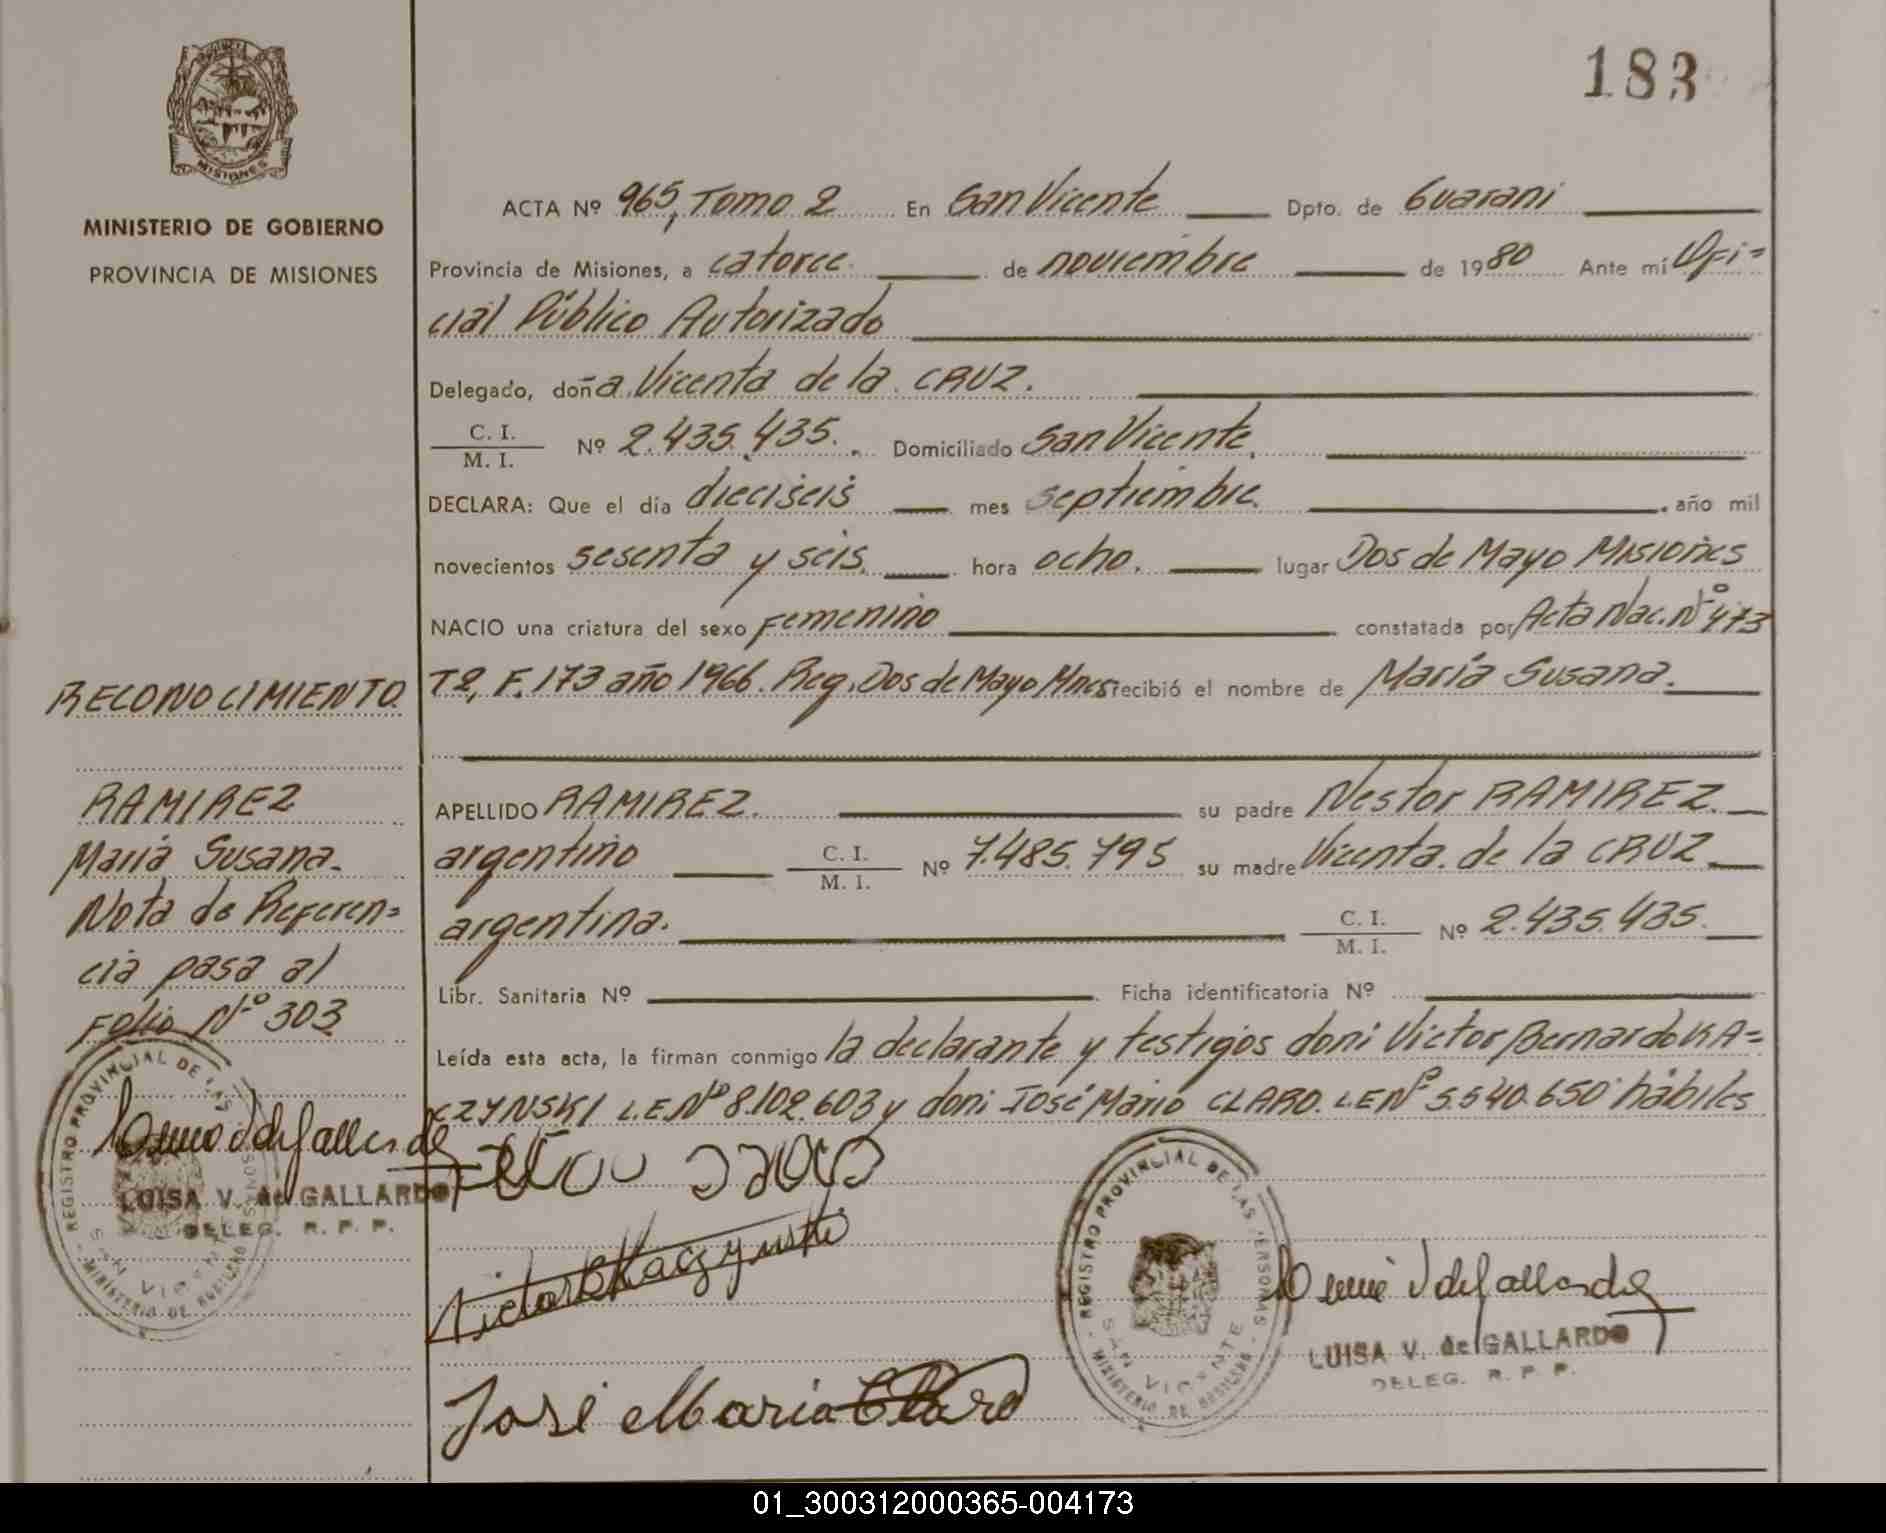 183
MISIONES
MINISTERIO DE GOBIERNO
PROVINCIA DE MISIONES
ACTA Nº 965, Tomo 2 En San Vicente Dpto. de Guarani
Provincia de Misiones, a catorce de noviembre de 1980 Ante mí Ofi=
cial Público Autorizado
Delegado, doña Vicenta de la CRUZ.
C. I.
M. I.
Nº 2.435.435. Domiciliado San Vicente,
DECLARA: Que el día dieciseis mes septiembre. año mil
novecientos sesenta y seis. hora ocho. lugar Dos de Mayo Misiones
NACIO una criatura del sexo Femenino constatada por Acta Nac. Nº 473
T2, F. 173 año 1966. Reg. Dos de Mayo Mnes recibió el nombre de María Susana.
APELLIDO RAMIREZ. su padre Nestor RAMIREZ.
argentino C. I.
M. I.
Nº 7.485.795 su madre Vicenta de la CRUZ
argentina. C. I.
M. I.
Nº 2.435.435.
Libr. Sanitaria Nº Ficha identificatoria Nº
Leída esta acta, la firman conmigo la declarante y testigos don: Victor Bernardo KA=
CZYNSKI L.E. Nº 8.102.603 y don: José Mario CLARO. L.E Nº 5.540.650 hábiles
RECONOCIMIENTO
RAMIREZ
María Susana.
Nota de Referen=
cia pasa al
Folio Nº 303
REGISTRO PROVINCIAL DE LAS PERSONAS
SAN VICENTE
LUISA V. de GALLARDO
DELEG. R. P. P.
Victor B Kaczynski
José Maria Claro
REGISTRO PROVINCIAL DE LAS PERSONAS
SAN VICENTE
LUISA V. de GALLARDO
DELEG. R. P. P.
01_300312000365-004173